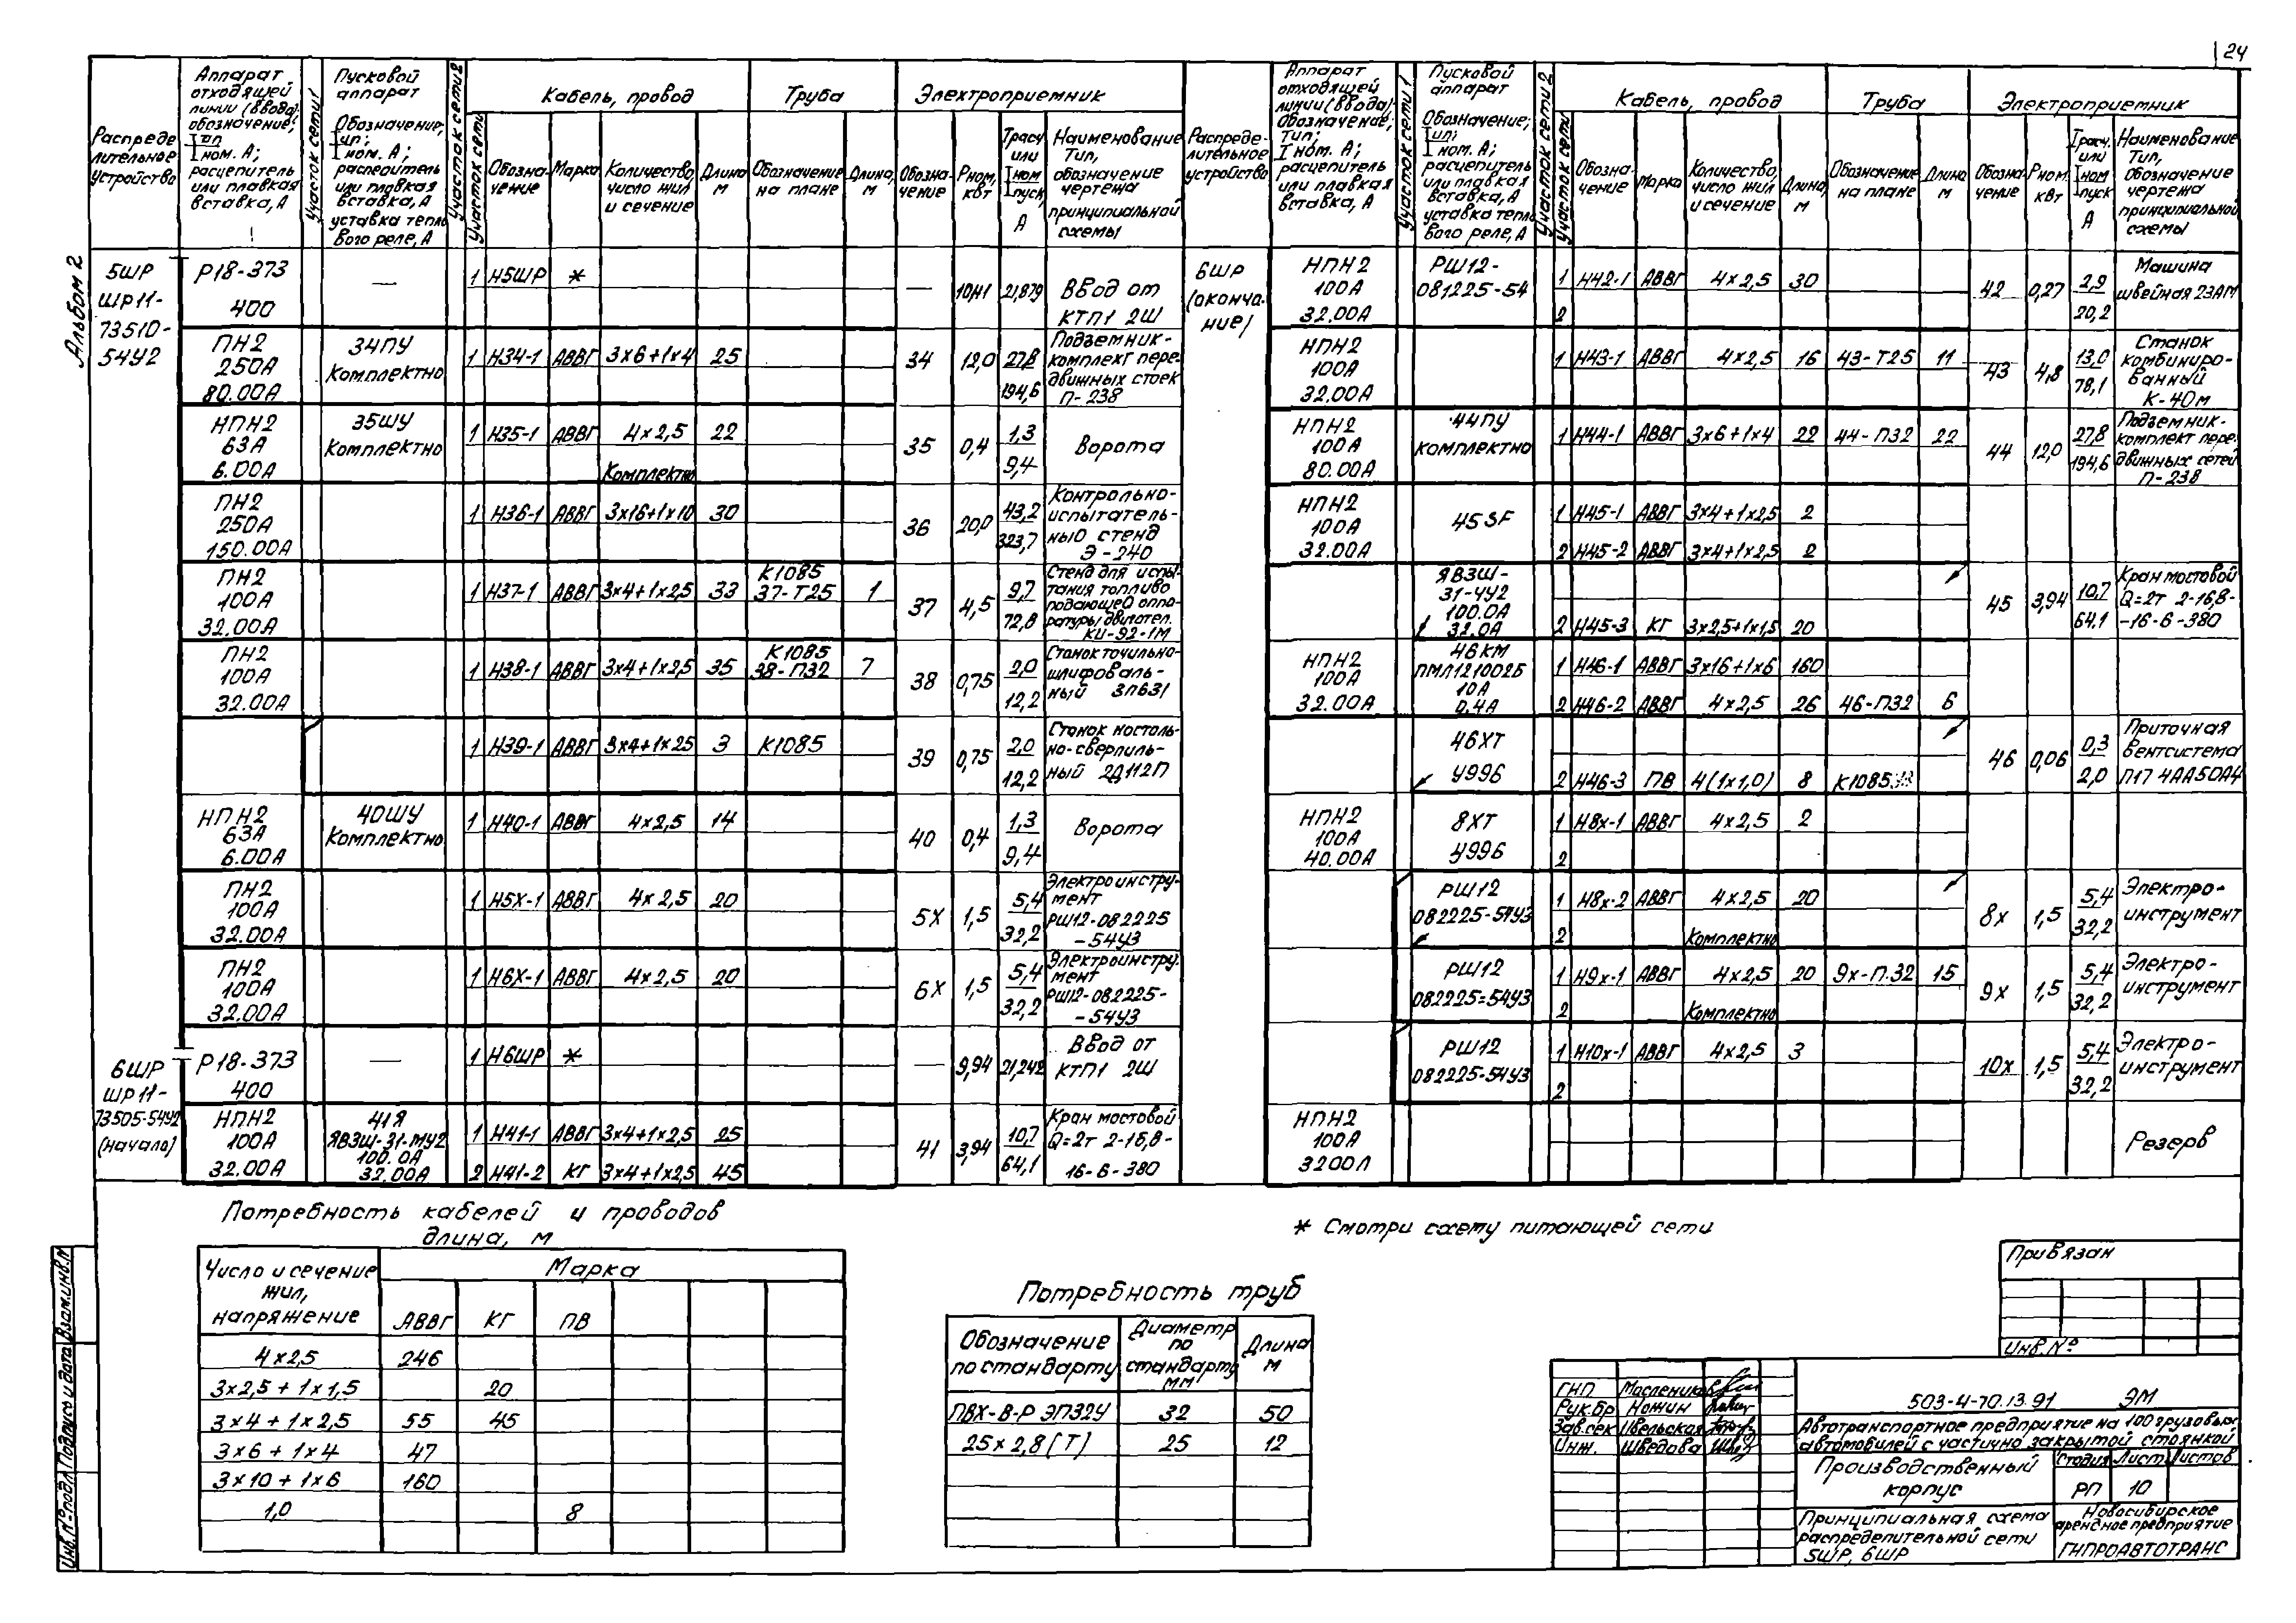 24
Альбом 2
Распреде
лительное
устройство
Аппарат
отходящей
линии (ввода)
обозначение;
Тип
I ном. А;
расцепитель
или плавкая
вставка, А
Участок сети 1
Пусковой
аппарат
Обозначение;
тип;
I ном. А;
расцепитель
или плавкая
вставка, А
уставка тепло
вого реле, А
Участок сети 2
Участок сети
Кабель, провод
Обозна-
чение
Марка
Количество,
число жил
и сечение
Длина
м
Труба
Обозначение
на плане
Длина,
м
Электроприемник
Обозна-
чение
Рном,
кВт
Iрасч
или
Iном
Iпуск,
А
Наименование
Тип,
обозначение
чертежа
принципиальной
схемы
Распреде-
лительное
устройство
Аппарат
отходящей
линии (ввода)
Обозначение;
Тип;
I ном. А;
расцепитель
или плавкая
вставка, А
Участок сети 1
Пусковой
аппарат
Обозначение;
тип;
I ном. А;
расцепитель
или плавкая
вставка, А
уставка тепло
вого реле, А
Участок сети 2
Участок сети
Кабель, провод
Обозна-
чение
Марка
Количество,
число жил
и сечение
Длина,
м
Труба
Обозначение
на плане
Длина
м
Электроприемник
Обозна-
чение
Рном.
кВт
Iрасч.
или
Iном
Iпуск
А
Наименование
Тип,
обозначение
чертежа
принципиальной
схемы
5ШР
ШР11-
73510-
54У2
Р18-373
400
—
1 Н5ШР *
— 10,41 21,879
Ввод от
КТП1 2Ш
ПН2
250А
80.00А
34ПУ
Комплектно
1 Н34-1 АВВГ 3х6+1х4 25
34 12,0 27,8
194,6
Подъемник-
комплект пере
движных стоек
П-238
НПН2
63А
6.00А
35ШУ
Комплектно
1 Н35-1 АВВГ 4х2,5 22
Комплектно
35 0,4 1,3
9,4
Ворота
ПН2
250А
150.00А
1 Н36-1 АВВГ 3х16+1х10 30
36 20,0 43,2
323,7
Контрольно-
испытатель-
ный стенд
Э-240
ПН2
100А
32.00А
1 Н37-1 АВВГ 3х4+1х2,5 33
К1085
37-Т25 1
37 4,5 9,7
72,8
Стенд для испы-
тания топливо
подающей аппа-
ратуры двигател.
КИ-92-1М
ПН2
100А
32.00А
1 Н38-1 АВВГ 3х4+1х2,5 35
К1085
38-П32 7
38 0,75 2,0
12,2
Станок точильно-
шлифоваль-
ный 3Л631
1 Н39-1 АВВГ 3х4+1х25 3 К1085
39 0,75 2,0
12,2
Станок настоль-
но-сверлиль-
ный 2Д112П
НПН2
63А
6.00А
40ШУ
Комплектно
1 Н40-1 АВВГ 4х2,5 14
40 0,4 1,3
9,4
Ворота
ПН2
100А
32.00А
1 Н5Х-1 АВВГ 4х2,5 20
5Х 1,5 5,4
32,2
Электроинстру-
мент
РШ12-082225
-54У3
ПН2
100А
32.00А
1 Н6Х-1 АВВГ 4х2,5 20
6Х 1,5 5,4
32,2
Электроинстру-
мент
РШ12-082225-
-54У3
6ШР
ШР11-
73505-54У2
(начало)
Р18-373
400
—
1 Н6ШР *
— 9,94 21,242
Ввод от
КТП1 2Ш
НПН2
100А
32.00А
41Я
ЯВЗШ-31-МУ2
100.0А
32.00А
1 Н41-1 АВВГ 3х4+1х2,5 25
2 Н41-2 КГ 3х4+1х2,5 45
41 3,94 10,7
64,1
Кран мостовой
Q=2т 2-16,8-
16-6-380
6ШР
(оконча-
ние)
НПН2
100А
32.00А
РШ12-
081225-54
1 Н42-1 АВВГ 4х2,5 30
2
42 0,27 2,9
20,2
Машина
швейная 23АМ
НПН2
100А
32.00А
1 Н43-1 АВВГ 4х2,5 16 43-Т25 11
43 4,8 13,0
78,1
Станок
комбиниро-
ванный
К-40м
НПН2
100А
80.00А
44ПУ
комплектно
1 Н44-1 АВВГ 3х6+1х4 22 44-П32 22
44 12,0 27,8
194,6
Подъемник-
комплект пере-
движных сетей
П-238
НПН2
100А
32.00А
45SF
1 Н45-1 АВВГ 3х4+1х2,5 2
2 Н45-2 АВВГ 3х4+1х2,5 2
ЯВЗШ-
31-УУ2
100.0А
32.0А
2 Н45-3 КГ 3х2,5+1х1,5 20
45 3,94 10,7
64,1
Кран мостовой
Q=2т 2-16,8-
-16-6-380
НПН2
100А
32.00А
46КМ
ПМЛ121002Б
10А
0.4А
1 Н46-1 АВВГ 3х16+1х6 160
2 Н46-2 АВВГ 4х2,5 26 46-П32 6
46ХТ
У996
2 Н46-3 ПВ 4(1х1,0) 8 К1085
46 0,06 0,3
2,0
Приточная
вентсистема
П17 4АА50А4
НПН2
100А
40.00А
8ХТ
У996
1 Н8х-1 АВВГ 4х2,5 2
2
РШ12
082225-54У3
1 Н8х-2 АВВГ 4х2,5 20
2 Комплектно
8х 1,5 5,4
32,2
Электро-
инструмент
РШ12
082225-54У3
1 Н9х-1 АВВГ 4х2,5 20 9х-П.32 15
2 Комплектно
9х 1,5 5,4
32,2
Электро-
инструмент
РШ12
082225-54У3
1 Н10х-1 АВВГ 4х2,5 3
2
10х 1,5 5,4
32,2
Электро-
инструмент
НПН2
100А
3200А
Резерв
Потребность кабелей и проводов
длина, м
Число и сечение
жил,
напряжение
Марка
АВВГ КГ ПВ
4х2,5 246
3х2,5 + 1х1,5 20
3х4 + 1х2,5 55 45
3х6 + 1х4 47
3х10 + 1х6 160
1,0 8
* Смотри схему питающей сети
Потребность труб
Обозначение
по стандарту
Диаметр
по
стандарту
мм
Длина
м
ПВХ-В-Р ЭП32У 32 50
25х2,8(Т) 25 12
Привязан
Инв.№
ГИП Маслеников
Рук.бр Ножин
Зав.сек Цвельская
Инж. Шведова
503-4-70.13.91 ЭМ
Автотранспортное предприятие на 100 грузовых
автомобилей с частично закрытой стоянкой
Производственный
корпус
Стадия Лист Листов
РП 10
Принципиальная схема
распределительной сети
5ШР, 6ШР
Новосибирское
арендное предприятие
ГИПРОАВТОТРАНС
Инв.№ подл. Подпись и дата Взам.инв.№